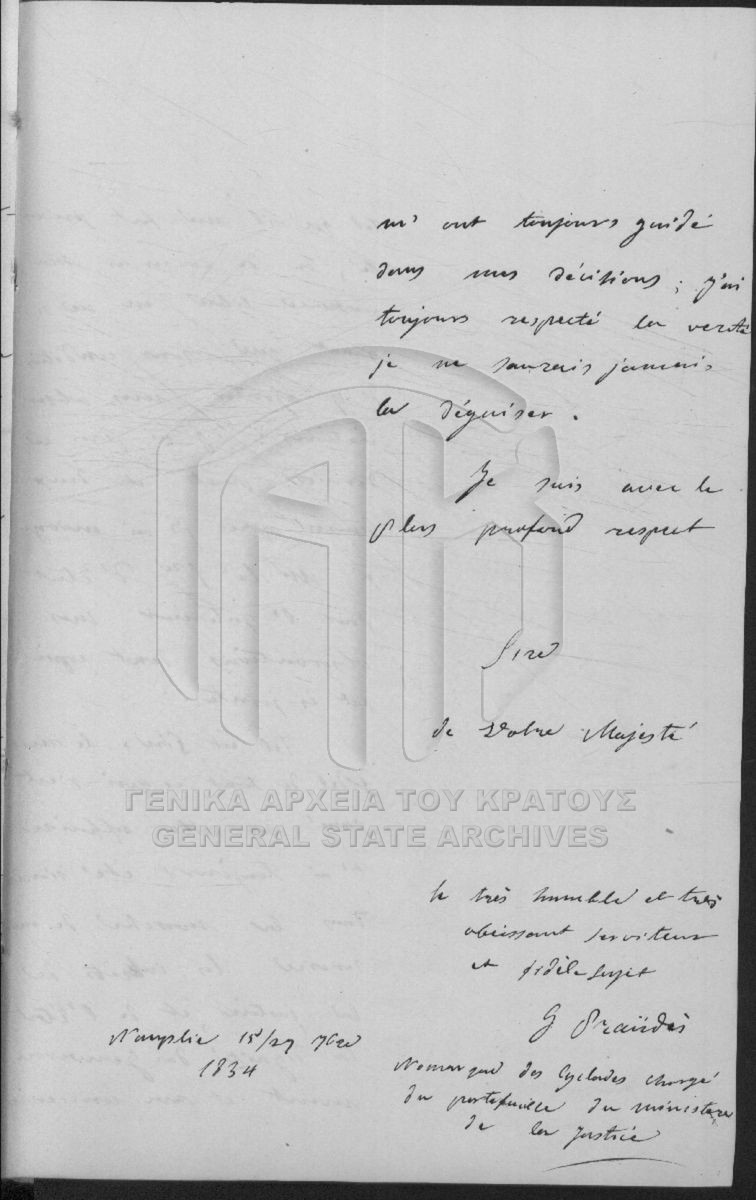 m'ont toujours guidé
dans mes décisions ; j'ai
toujours respecté la verité
je ne saurais jamais
la déguiser.
Je suis avec le
plus profond respect
Sire
de Votre Majesté
ΓΕΝΙΚΑ ΑΡΧΕΙΑ ΤΟΥ ΚΡΑΤΟΥΣ
GENERAL STATE ARCHIVES
le très humble et très
obeissant serviteur
et fidèle sujet
G Praïdès
Nauplie 15/27 7bre
1834
Nomarque des Cyclades chargé
du portefeuille du ministère
de la justice